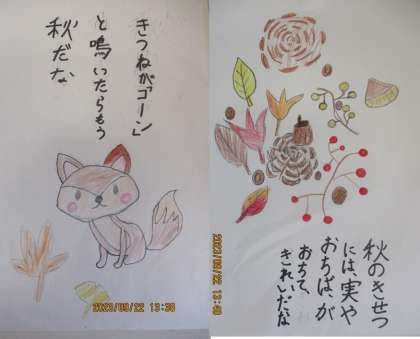 きつねが「ゴーン」
と鳴いたらもう
秋だな
2023/09/22 13:38
秋のきせつ
には、実や
おちばが
おちて、
きれいだな
2023/09/22 13:40